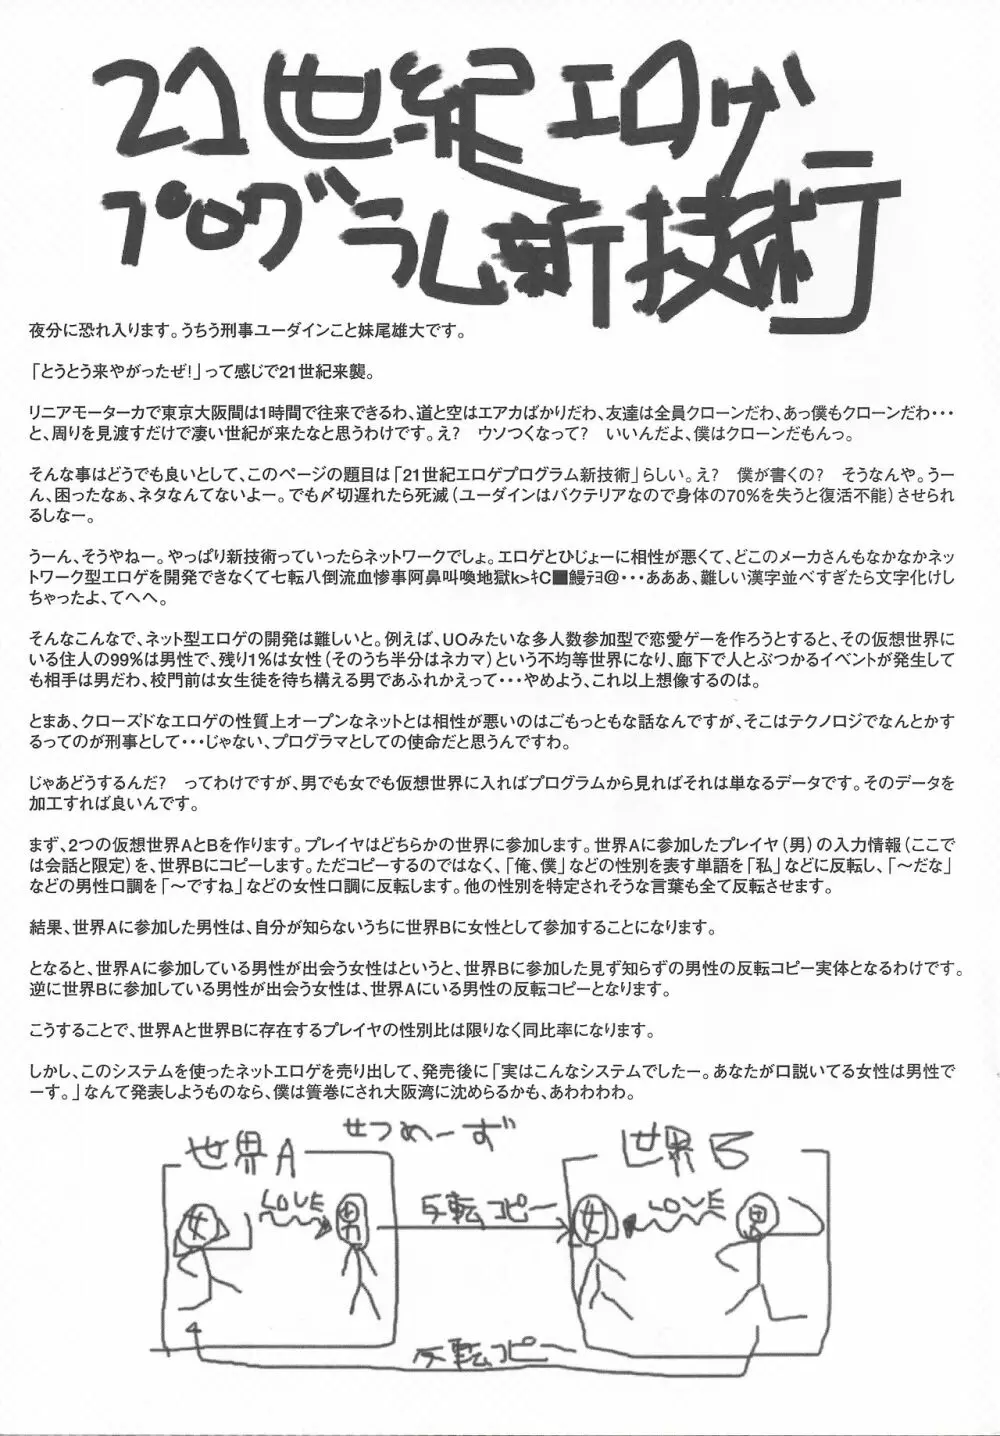 21世紀エロゲ
プログラム新技術
夜分に恐れ入ります。うちう刑事ユーダインこと妹尾雄大です。
「とうとう来やがったぜ!」って感じで21世紀来襲。
リニアモーターカで東京大阪間は1時間で往来できるわ、道と空はエアカばかりだわ、友達は全員クローンだわ、あっ僕もクローンだわ・・・
と、周りを見渡すだけで凄い世紀が来たなと思うわけです。え?　ウソつくなって?　いいんだよ、僕はクローンだもんっ。
そんな事はどうでも良いとして、このページの題目は「21世紀エロゲプログラム新技術」らしい。え?　僕が書くの?　そうなんや。うー
ん、困ったなぁ、ネタなんてないよー。でも〆切遅れたら死滅(ユーダインはバクテリアなので身体の70%を失うと復活不能)させられ
るしなー。
うーん、そうやねー。やっぱり新技術っていったらネットワークでしょ。エロゲとひじょーに相性が悪くて、どこのメーカさんもなかなかネッ
トワーク型エロゲを開発できなくて七転八倒流血惨事阿鼻叫喚地獄k>ｷC■鰻ﾃﾖ@・・・あああ、難しい漢字並べすぎたら文字化けし
ちゃったよ、てへへ。
そんなこんなで、ネット型エロゲの開発は難しいと。例えば、UOみたいな多人数参加型で恋愛ゲーを作ろうとすると、その仮想世界に
いる住人の99%は男性で、残り1%は女性(そのうち半分はネカマ)という不均等世界になり、廊下で人とぶつかるイベントが発生して
も相手は男だわ、校門前は女生徒を待ち構える男であふれかえって・・・やめよう、これ以上想像するのは。
とまあ、クローズドなエロゲの性質上オープンなネットとは相性が悪いのはごもっともな話なんですが、そこはテクノロジでなんとかす
るってのが刑事として・・・じゃない、プログラマとしての使命だと思うんですわ。
じゃあどうするんだ?　ってわけですが、男でも女でも仮想世界に入ればプログラムから見ればそれは単なるデータです。そのデータを
加工すれば良いんです。
まず、2つの仮想世界AとBを作ります。プレイヤはどちらかの世界に参加します。世界Aに参加したプレイヤ(男)の入力情報(ここで
は会話と限定)を、世界Bにコピーします。ただコピーするのではなく、「俺、僕」などの性別を表す単語を「私」などに反転し、「〜だな」
などの男性口調を「〜ですね」などの女性口調に反転します。他の性別を特定されそうな言葉も全て反転させます。
結果、世界Aに参加した男性は、自分が知らないうちに世界Bに女性として参加することになります。
となると、世界Aに参加している男性が出会う女性はというと、世界Bに参加した見ず知らずの男性の反転コピー実体となるわけです。
逆に世界Bに参加している男性が出会う女性は、世界Aにいる男性の反転コピーとなります。
こうすることで、世界Aと世界Bに存在するプレイヤの性別比は限りなく同比率になります。
しかし、このシステムを使ったネットエロゲを売り出して、発売後に「実はこんなシステムでしたー。あなたが口説いてる女性は男性で
ーす。」なんて発表しようものなら、僕は簀巻にされ大阪湾に沈めらるかも、あわわわわ。
せつめーず
世界A
世界B
女
LOVE
男
反転コピー
女
LOVE
男
反転コピー